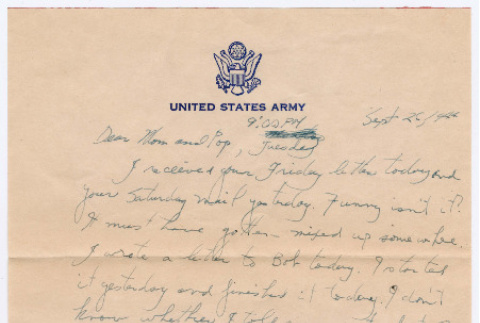 UNITED STATES ARMY
9:00 PM Sept 26/44
Dear Mom and Pop, Tuesday
I received your Friday letter today and
your Saturday mail yesterday. Funny isn't it?
It must have gotten mixed up somewhere.
I wrote a letter to Bob today. I started
it yesterday and finished it today. I don't
know whether I